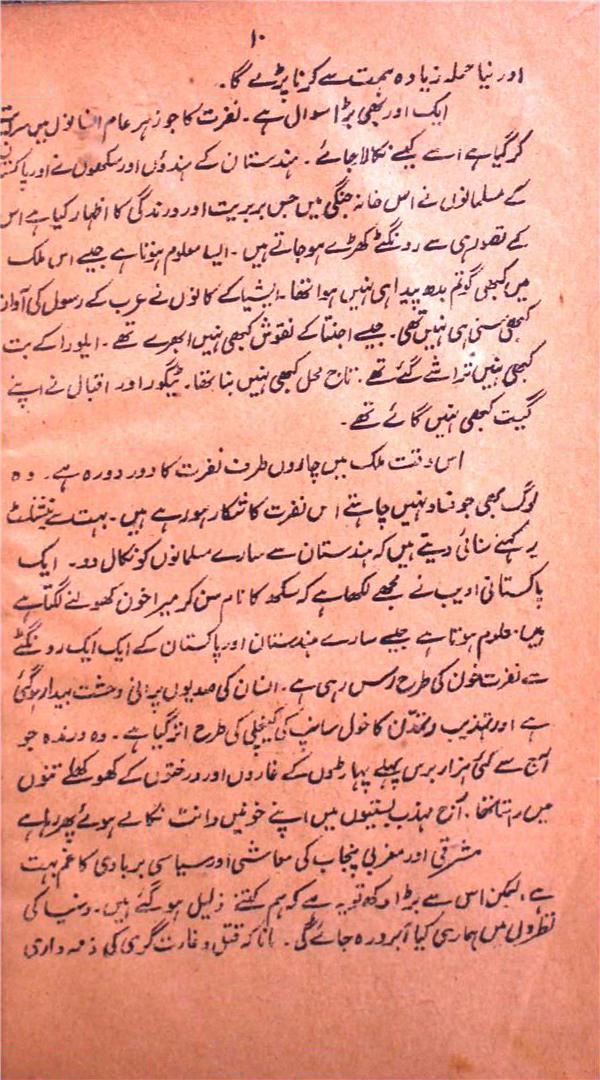 ۱۰
اور نیا حملہ زیادہ ہمت سے کرنا پڑے گا۔
ایک اور بھی بڑا سوال ہے۔ نفرت کا جو زہر عام انسانوں میں سرایت
کر گیا ہے اسے کیسے نکالا جائے۔ ہندستان کے ہندوؤں اور سکھوں نے اور پاکستان
کے مسلمانوں نے اس خانہ جنگی میں جس بربریت اور درندگی کا اظہار کیا ہے اس
کے تصور ہی سے رونگٹے کھڑے ہو جاتے ہیں۔ ایسا معلوم ہوتا ہے جیسے اس ملک
میں کبھی گوتم بدھ پیدا ہی نہیں ہوا تھا۔ ایشیا کے کانوں نے عرب کے رسول کی آواز
کبھی سنی ہی نہیں تھی۔ جیسے اجنتا کے نقوش کبھی نہیں ابھرے تھے۔ ایلورا کے بت
کبھی نہیں تراشے گئے تھے۔ تاج محل کبھی نہیں بنا تھا۔ ٹیگور اور اقبال نے اپنے
گیت کبھی نہیں گائے تھے۔
اس وقت ملک میں چاروں طرف نفرت کا دور دورہ ہے۔ وہ
لوگ بھی جو فساد نہیں چاہتے اس نفرت کا شکار ہو رہے ہیں۔ بہت سے نیشنلسٹ
یہ کہتے سنائی دیتے ہیں کہ ہندستان سے سارے مسلمانوں کو نکال دو۔ ایک
پاکستانی ادیب نے مجھے لکھا ہے کہ سکھ کا نام سن کر میرا خون کھولنے لگتا ہے
معلوم ہوتا ہے جیسے سارے ہندستان اور پاکستان کے ایک ایک رونگٹے
سے نفرت خون کی طرح رس رہی ہے۔ انسان کی صدیوں پرانی وحشت بیدار ہو گئی
ہے اور تہذیب و تمدن کا خول سانپ کی کینچلی کی طرح اتر گیا ہے۔ وہ درندہ جو
آج سے کئی ہزار برس پہلے پہاڑوں کے غاروں اور درختوں کے کھوکھلے تنوں
میں رہتا تھا۔ آج مہذب بستیوں میں اپنے خونیں دانت نکالے ہوئے پھر رہا ہے
مشرقی اور مغربی پنجاب کی معاشی اور سیاسی بربادی کا غم بہت
ہے۔ لیکن اس سے بڑا دکھ تو یہ ہے کہ ہم کتنے ذلیل ہو گئے ہیں۔ دنیا کی
نظروں میں ہماری کیا آبرو رہ جائے گی۔ مانا کہ قتل و غارت گری کی ذمہ داری